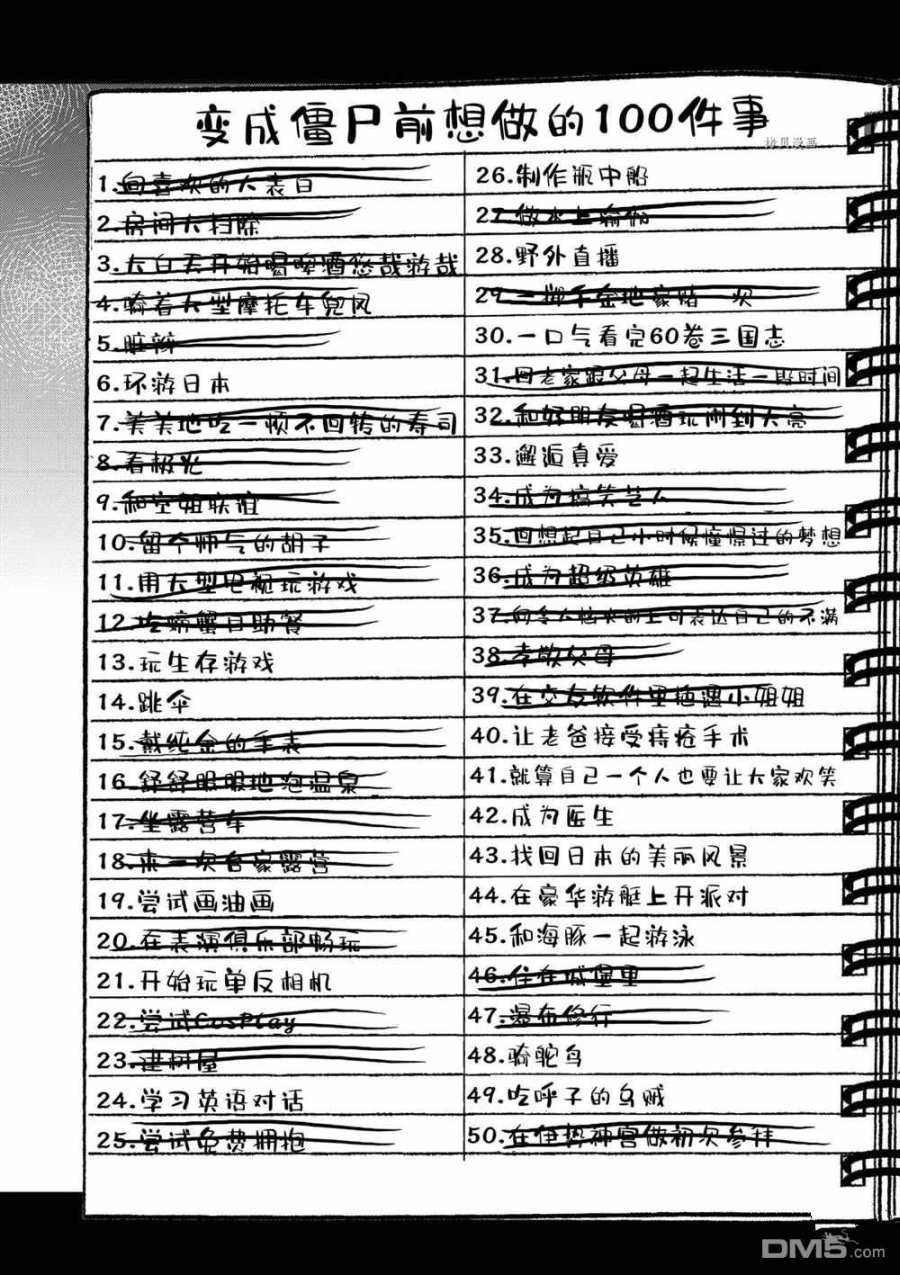 变成僵尸前想做的100件事
拷贝漫画
1.向喜欢的人表白
2.房间大扫除
3.大白天开始喝啤酒悠哉游哉
4.骑着大型摩托车兜风
5.脏辫
6.环游日本
7.美美地吃一顿不回转的寿司
8.看极光
9.和空姐联谊
10.留个帅气的胡子
11.用大型电视玩游戏
12.吃螃蟹自助餐
13.玩生存游戏
14.跳伞
15.戴纯金的手表
16.舒舒服服地泡温泉
17.坐露营车
18.来一次合家露营
19.尝试画油画
20.在表演俱乐部畅玩
21.开始玩单反相机
22.尝试CosPlay
23.建树屋
24.学习英语对话
25.尝试免费拥抱
26.制作瓶中船
27.做水上瑜伽
28.野外直播
29.一掷千金地豪赌一次
30.一口气看完60卷三国志
31.回老家跟父母一起生活一段时间
32.和好朋友喝酒玩闹到天亮
33.邂逅真爱
34.成为搞笑艺人
35.回想起自己小时候憧憬过的梦想
36.成为超级英雄
37.向令人恼火的上司表达自己的不满
38.孝敬父母
39.在交友软件里偶遇小姐姐
40.让老爸接受痔疮手术
41.就算自己一个人也要让大家欢笑
42.成为医生
43.找回日本的美丽风景
44.在豪华游艇上开派对
45.和海豚一起游泳
46.住在城堡里
47.瀑布修行
48.骑鸵鸟
49.吃呼子的乌贼
50.在伊势神宫做初次参拜
DM5.com